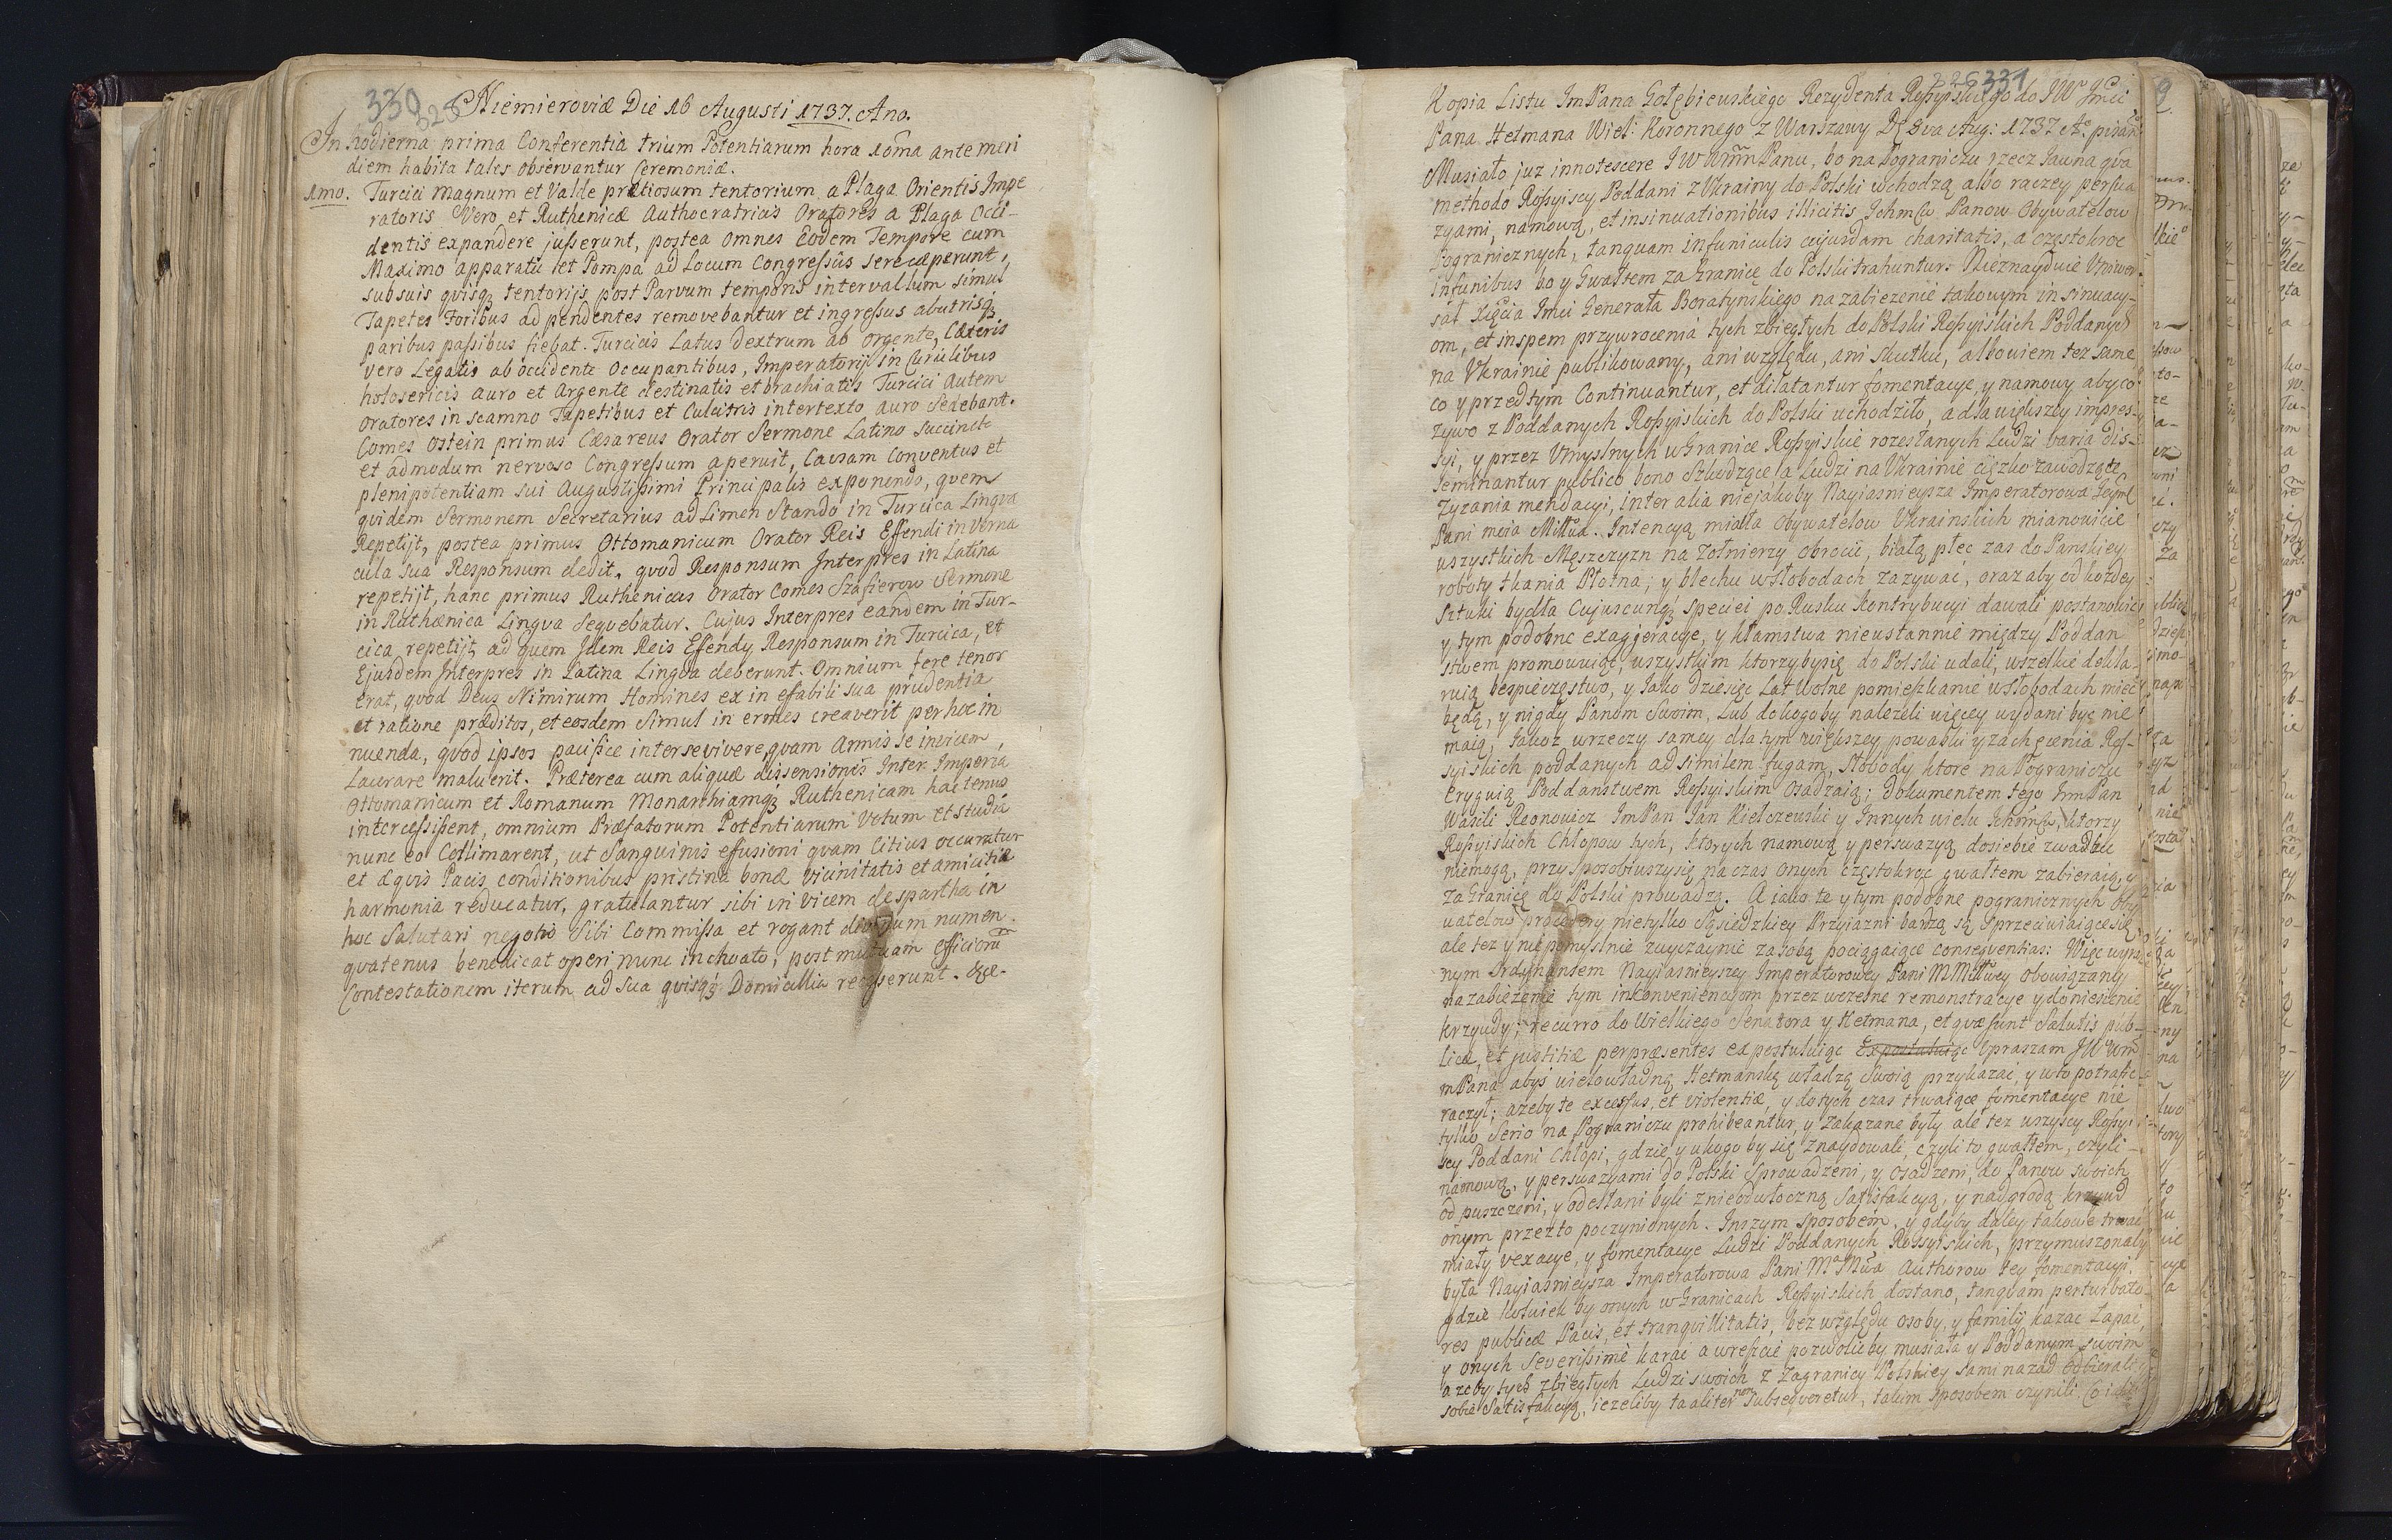 330
328
Niemieroviæ Die 16 Augusti 1737. Ano.
In hodierna prima Conferentia trium Potentiarum hora 10ma ante meri
diem habita tales observantur Ceremoniæ.
1mo. Turcici Magnum et Valde prætiosum tentorium a Plaga Orientis Impe
ratoris Vero et Ruthenicæ Authocratricis Oratores a Plaga Occi-
dentis expandere jusserunt, postea omnes Eodem Tempore cum
Maximo apparatu et Pompa ad Locum Congressûs se receperunt,
sub suis quisq; tentorijs post Parvum temporis intervallum simul
Tapetes Foribus ad pendentes removebantur et ingressus ab utrisq;
paribus passibus fiebat. Turcicis Latus dextrum ab orgente, Cæteris
vero Legatis ab occidente Occupantibus, Imperatorij in Curulibus
holosericis auro et Argente destinatis et brachiatis Turcici autem
oratores in scamno Tapetibus et Culcitris intertexto auro Sedebant.
Comes Ostein primus Cæsareus Orator Sermone Latino succincte
et admodum nervoso Congressum aperuit, Causam Conventus et
plenipotentiam sui Augustissimi Principalis exponendo, quem
quidem Sermonem Secretarius ad Limen Stando in Turcica Lingva
Repetijt, postea primus Ottomanicum Orator Reis Effendi in Verna
cula sua Responsum dedit, quod Responsum Interpres in Latina
repetijt, hanc primus Ruthenicus Orator Comes Szafierow Sermone
in Ruthænica Lingva Sequebatur. Cujus Interpres eandem in Tur-
cica repetijt, ad quem Idem Reis Effendy Responsum in Turcica, et
Ejusdem Interpres in Latina Lingva deberunt. Omnium fere tenor
erat, quod Deus Nimirum Homines ex in effabili sua prudentia
et ratione præditos, et eosdem Simul in ermes creaverit per hoc in
nuenda, quod ipsos pacifice inter se vivere quam Armis se invicem
Lacerare maluerit. Præterea cum aliquæ dissensionis Inter Imperia
Ottomanicum et Romanum Monarchiamq; Ruthenicam hactenus
intercessissent, omnium Præfatorum Potentiarum Votum et studia
nunc eo Collimarent, ut Sanguinis effusioni quam Citius occuratur
et æquis Pacis conditionibus pristina bonæ vicinitatis et amicitiæ
harmonia reducatur, gratulantur sibi in vicem de spartha in
hoc Salutari negotio Sibi Commissa et rogant divinum numen.
quatenus benedicat operi nunc inchoato, post mutuam officiorũ
Contestationem iterum ad sua quisq; Domicillia recesserunt. &ce.
326
331
Kopia Listu ImPana Gołębiewskiego Rezydenta Rossyiskiego do JW Jmci
Pana Hetmana Wiel: Koronnego z Warszawy D. 8va Aug: 1737 Ao pisan
Musiało juz innotescere JWWmmPanu, bo na Pograniczu rzecz Jawna qva
methodo Rossyiscy Poddani z Ukrainy do Polski wchodzą albo raczey perswa
zyami, namową, et insinuationibus illicitis Ichmciw Panow Obywatelow
Pogranicznych, tanquam in funiculis cujusdam charitatis, a częstokroc
in funibus bo y Gwałtem za Granicę do Polski trahuntur. Nieznayduie Uniwer
sał Xięcia Imci Generała Boratynskiego na zabiezenie takowym insinuacy-
om, et in spem przywrocenia tych zbiegłych do Polski Rossyiskich Poddanych
na Ukrainie publikowany, ani względu, ani Skutku, albowiem tez same
co y przedtym Continuantur, et dilatantur fomentacye, y namowy aby co
zywo z Poddanych Rossyiskich do Polski uchodziło, a dla większey impres-
syi, y przez Umyslnych w Granice Rossyiskie rozesłanych Ludzi varia dis-
seminantur publico bono Szkodzące a Ludzi na Ukrainie ciężko zawodzące
zyzania mendacyi, inter alia niejakoby Nayiasnieysza Imperatorowa Jeymć
Pani moia Miłłwa. Intencyą miała Obywatelow Ukrainskich mianowicie
wszystkich Męszczyzn na Zołnierzy obrocic, białą płec zas do Panskiey
roboty tkania Płotna, y blechu w Słobodach zazywac, oraz aby od kozdey
Sztuki bydła Cujuscunq; speciei po Rusku kontrybucyi dawali postanowic
y tym podobne exaggeracye, y kłamstwa nieustannie między Poddan
stwem promowuiąc, wszystkim ktorzyby się do Polski udali, wszelkie dekla-
ruią bespieczęstwo, y Jako dziesięc Lat Wolne pomieszkanie w Słobodach mieć
będą, y nigdy Panom Swoim, Lub do kogoby nalezeli więcey wydani byc nie
maią, Jakoz w rzeczy samey dla tym większey powabu y zachęcenia Ros-
syiskich poddanych ad similem fugam, Słobody ktore na Pograniczu
Eryguią Poddanstwem Rossyiskim Osadzaią; dokumentem tego ImPan
Wasili Reonowicz ImPan Jan Kiełczewski y Innych wielu Ichmciw, ktorzy
Rossyiskich Chłopow tych, ktorych namową y perswazyą do siebie zwabic
niemogą, przysposobiwszy się na czas onych częstokroc gwałtem zabieraią, y
za Granicę do Polski prowadzą. A jako te y tym podobne pogranicznych Oby
watelow procedery nietylko Sąsiedzkiey Przyiazni bardzo są Sprzeciwiaiące się
ale tez y niepomyslnie zwyczaynie za sobą pociągaiące consequentias: Więc wyra
znym Ordynansem Nayiasnieyszey Imperatorowey Pani MMiłłwey obowiązany
na zabiezenie tym inkonveniencyom przez wczesne remonstracye y doniesienie
krzywdy; recurro do Wielkiego Senatora y Hetmana, et quæ sunt Salutis pub-
licæ, et justitiæ per præsentes expostuluiąc Expostuluiąc Upraszam JW Wm
mPana abys wielowładną Hetmanską władzą Swoią przykazac, y w to potrafic
raczył; azeby te excessus, et violentiæ, y dotych czas trwaiące fomentacye nie
tylko Serio na Pograniczu prohibeantur, y Zakazane były ale tez wszyscy Rossyi
scy Poddani Chłopi, gdzie y u kogo by się znaydowali, czyli to gwałtem, czyli-
namową, y perswazyami do Polski Sprowadzeni, y osadzeni, do Panow swoich
odpuszczeni, y odesłani byli z nieodwłoczną Satisfakcyą, y nadgrodą krzywd
onym przez to poczynionych. Inszym sposobem, y gdyby daley takowe trwać
miały vexacye, y fomentacye Ludzi Poddanych Rossyiskich, przymuszonaby
była Nayiasnieysza Imperatorowa Pani MaMłłwa Authorow tey fomentacyi,
gdzie kolwiek by onych w Granicach Rossyiskich dostano, tanquam perturbato-
res publicæ Pacis, et tranquillitatis, bez względu osoby, y familij kazac łapac,
y onych Severissimè karac a wreszcie pozwolicby musiała y Poddanym swoim
azeby tych zbiegłych Ludzi swoich z Zagranicy Polskiey sami nazad odbierali
sobie Satisfakcyą, iezeliby ta aliter non Subsequeretur, takim Sposobem czynili